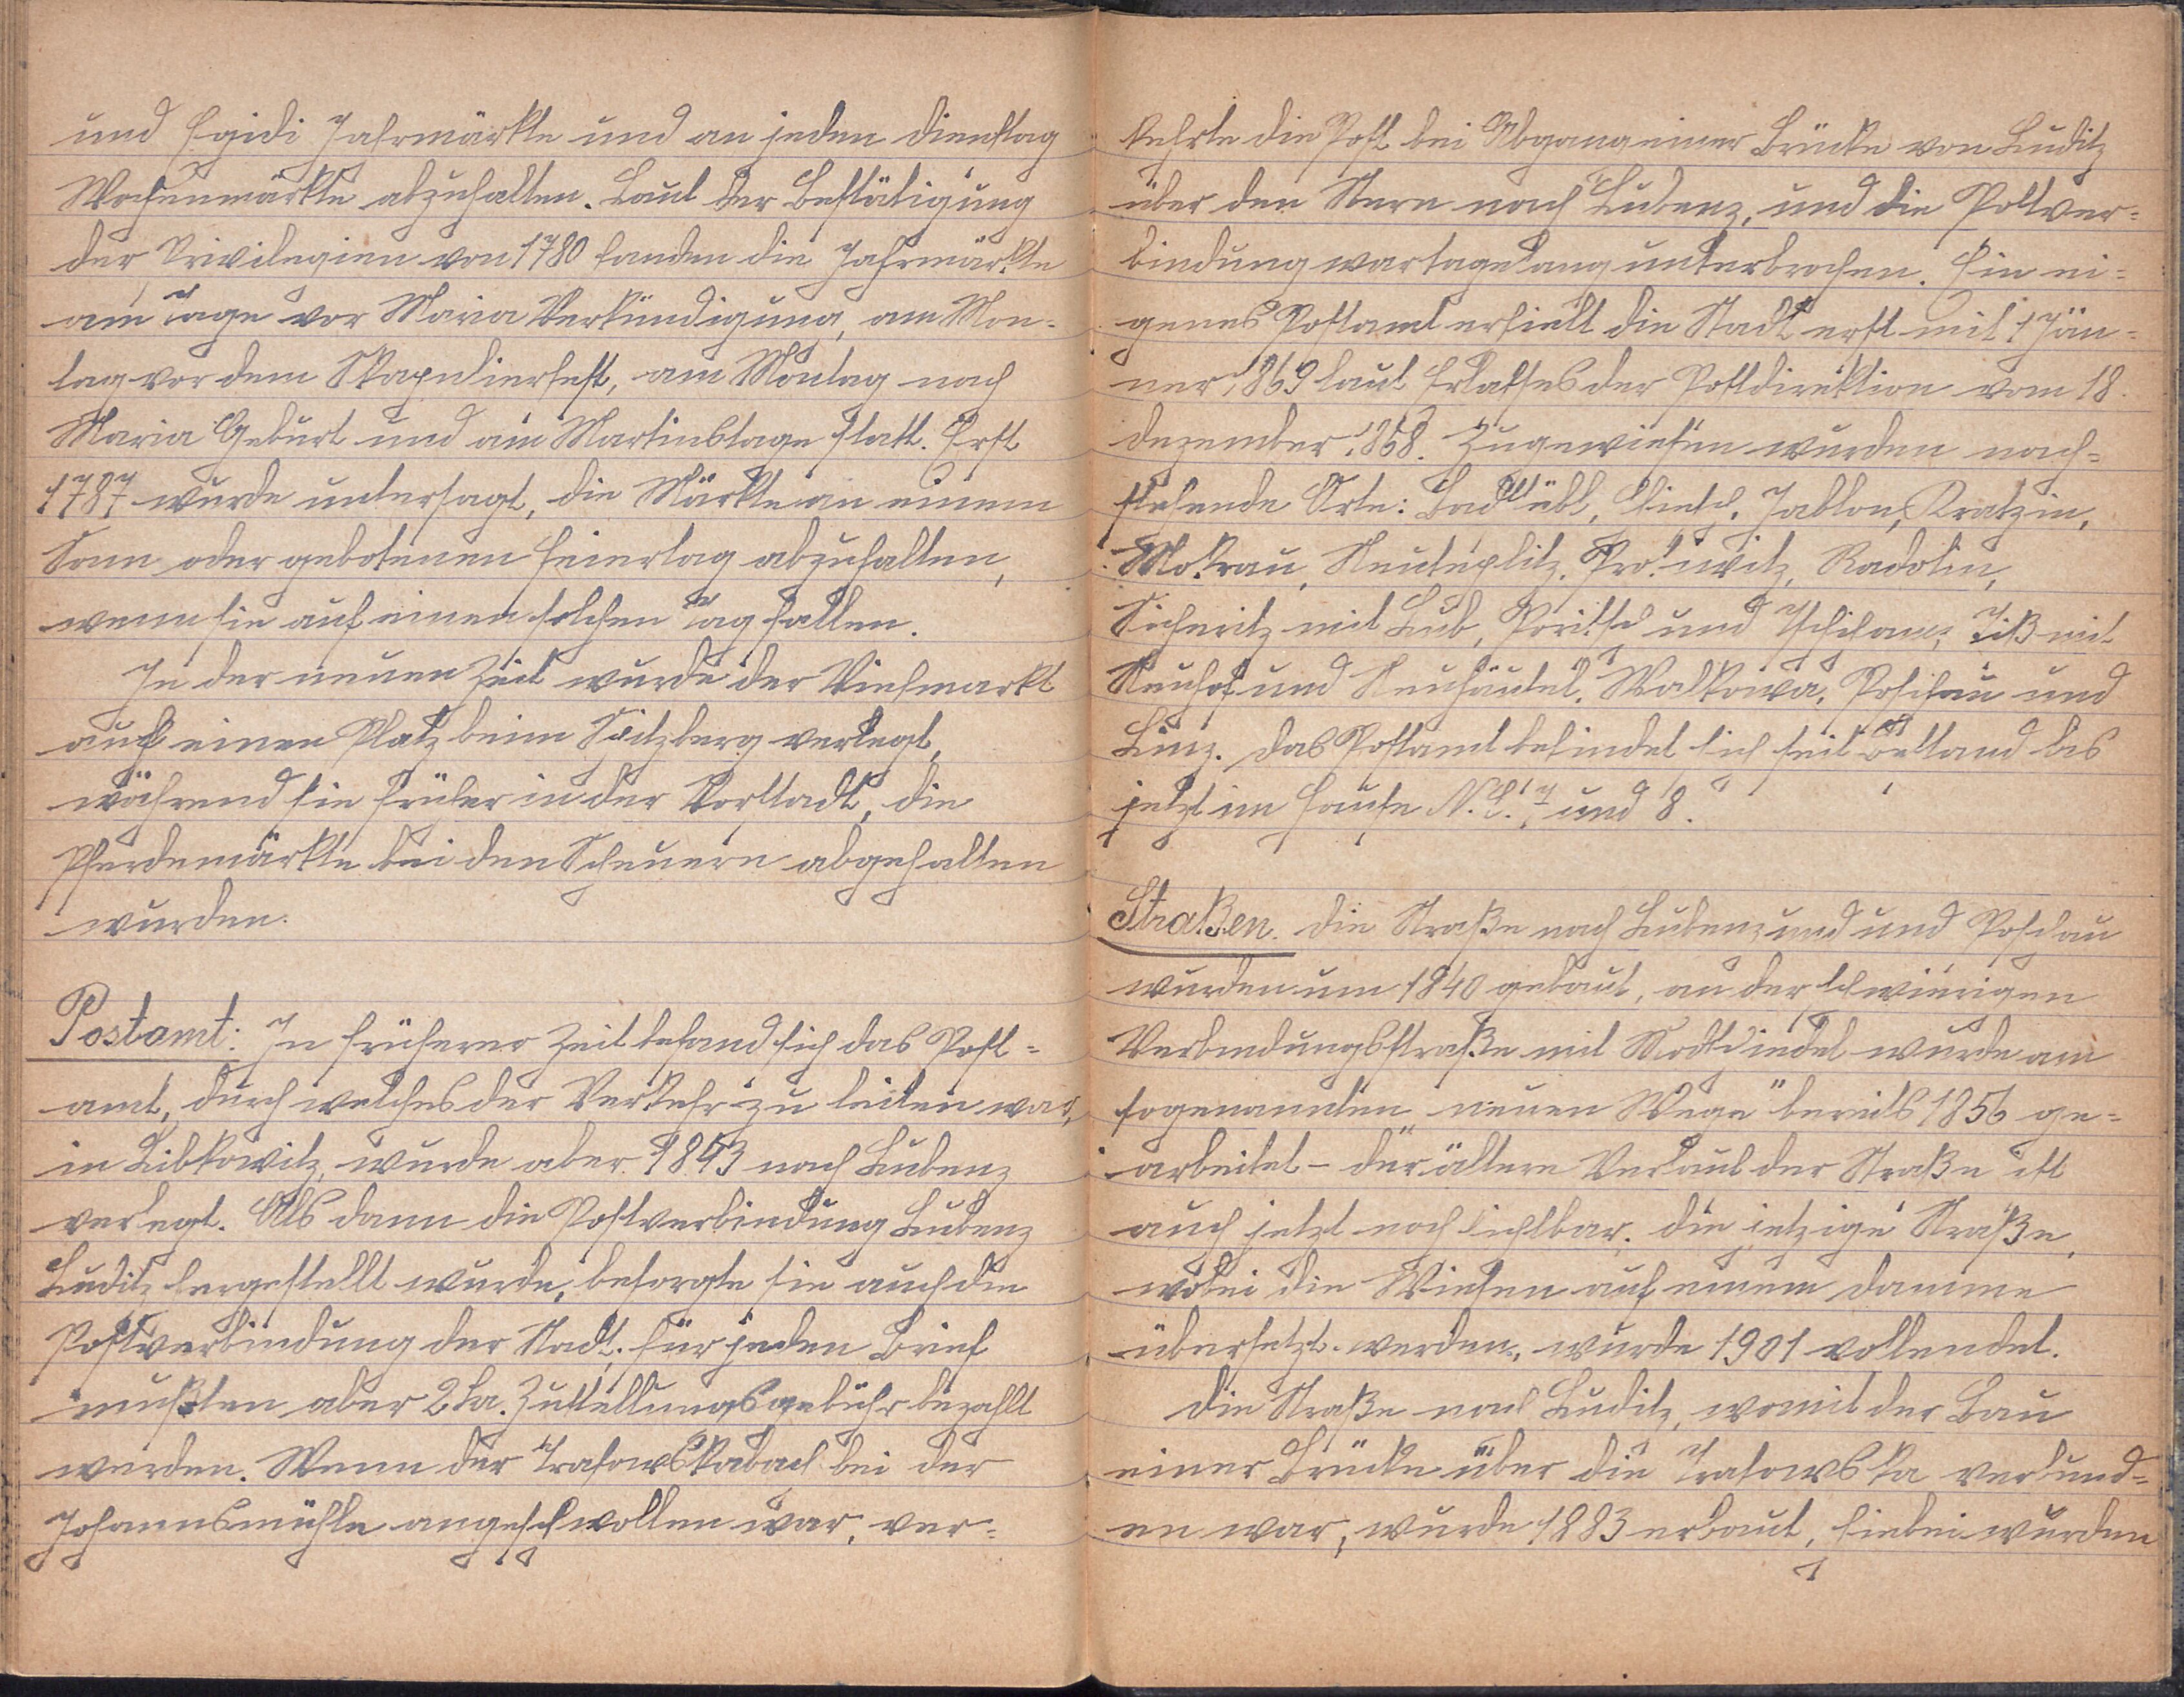 und Egidi Jahrmärkte und an jeden Dienstag
Wochenmärkte abzuhalten. Laut der Bestätigung
der Privilegien von 1780 fanden die Jahrmärkte
am Tage vor Maria Verkündigung, am Mon-
tag vor dem Skapulierfest, am Montag nach
Maria Geburt und am Martinstage statt. Erst
1787 wurde untersagt, die Märkte an einem
Sonn oder gebotenen Feiertag abzuhalten,
wenn sie auf einen solchen Tag fallen.
In der neuen Zeit wurde der Viehmarkt
auf einen Platz beim Spitzberg verlegt,
während sie früher in der Vorstadt, die
Pferdemärkte bei den Scheuern abgehalten
wurden.
Postamt: In früherer Zeit befand sich das Post-
amt, durch welches der Verkehr zu leiten war,
in Libkowitz, wurde aber 1843 nach Lubenz
verlegt. Als dann die Postverbindung Lubenz
Luditz hergestellt wurde, besorgte sie auch die
Postverbindung der Stadt, für jeden Brief
mußten aber 2 kr. Zustellungsgebühr bezahlt
werden. Wenn der Trasowskabach bei der
Johannsmühle angeschwollen war, ver-
kehrte die Post bei Abgang einer Brücke von Luditz
über den Stern nach Lubenz, und die Postver-
bindung war tagelang unterbrochen. Ein ei-
genes Postamt erhielt die Stadt erst mit 1 Jän-
ner 1869 laut Erlasses der Postdirektion vom 18.
Dezember 1868. Zugewiesen wurden nach-
stehende Orte: Jablon, Kratzin,
Mokrau, Neuteplitz, Radotin,
Sicheritz mit Lub, und Tschihana, Tiß mit
Neuhof und Neuhäusel, Walkowa, Poschau und
Linz. Das Postamt befindet sich seit Bestand bis
jetzt im Hause N.C. 7 und 8.
Straßen. Die Straße nach Lubenz und und Poschau
wurden um 1840 gebaut, an der schwierigen
Verbindungsstraße mit wurde am
sogenannten „neuen Wege" bereits 1856 ge-
arbeitet - der ältere Verlauf der Straße ist
auch jetzt noch sichtbar. Die jetzige Straße,
wobei die Wiesen auf einem Damme
übersetzt werden, wurde 1901 vollendet.
Die Straße nach Luditz, womit der Bau
einer Brücke über die Trasowska verbund-
en war, wurde 1883 erbaut, hiebei wurden